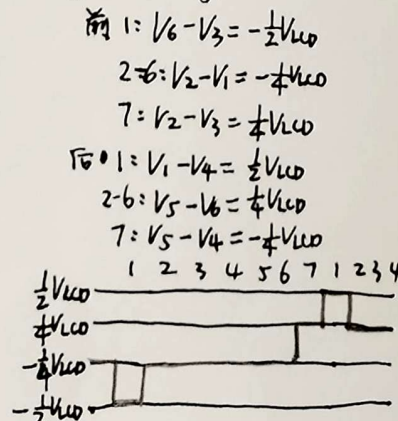 前 1: V6-V3=-½VLCD
2-6: V2-V1=-¼VLCD
7: V2-V3=¼VLCD
后 1: V1-V4=½VLCD
2-6: V5-V6=¼VLCD
7: V5-V4=-¼VLCD
1 2 3 4 5 6 7 1 2 3 4
½VLCD
¼VLCD
-¼VLCD
-½VLCD